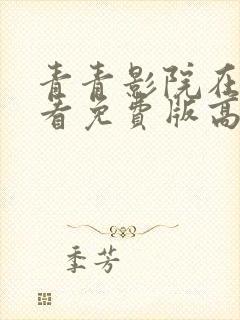 青青影院在
看免费版高
季芳